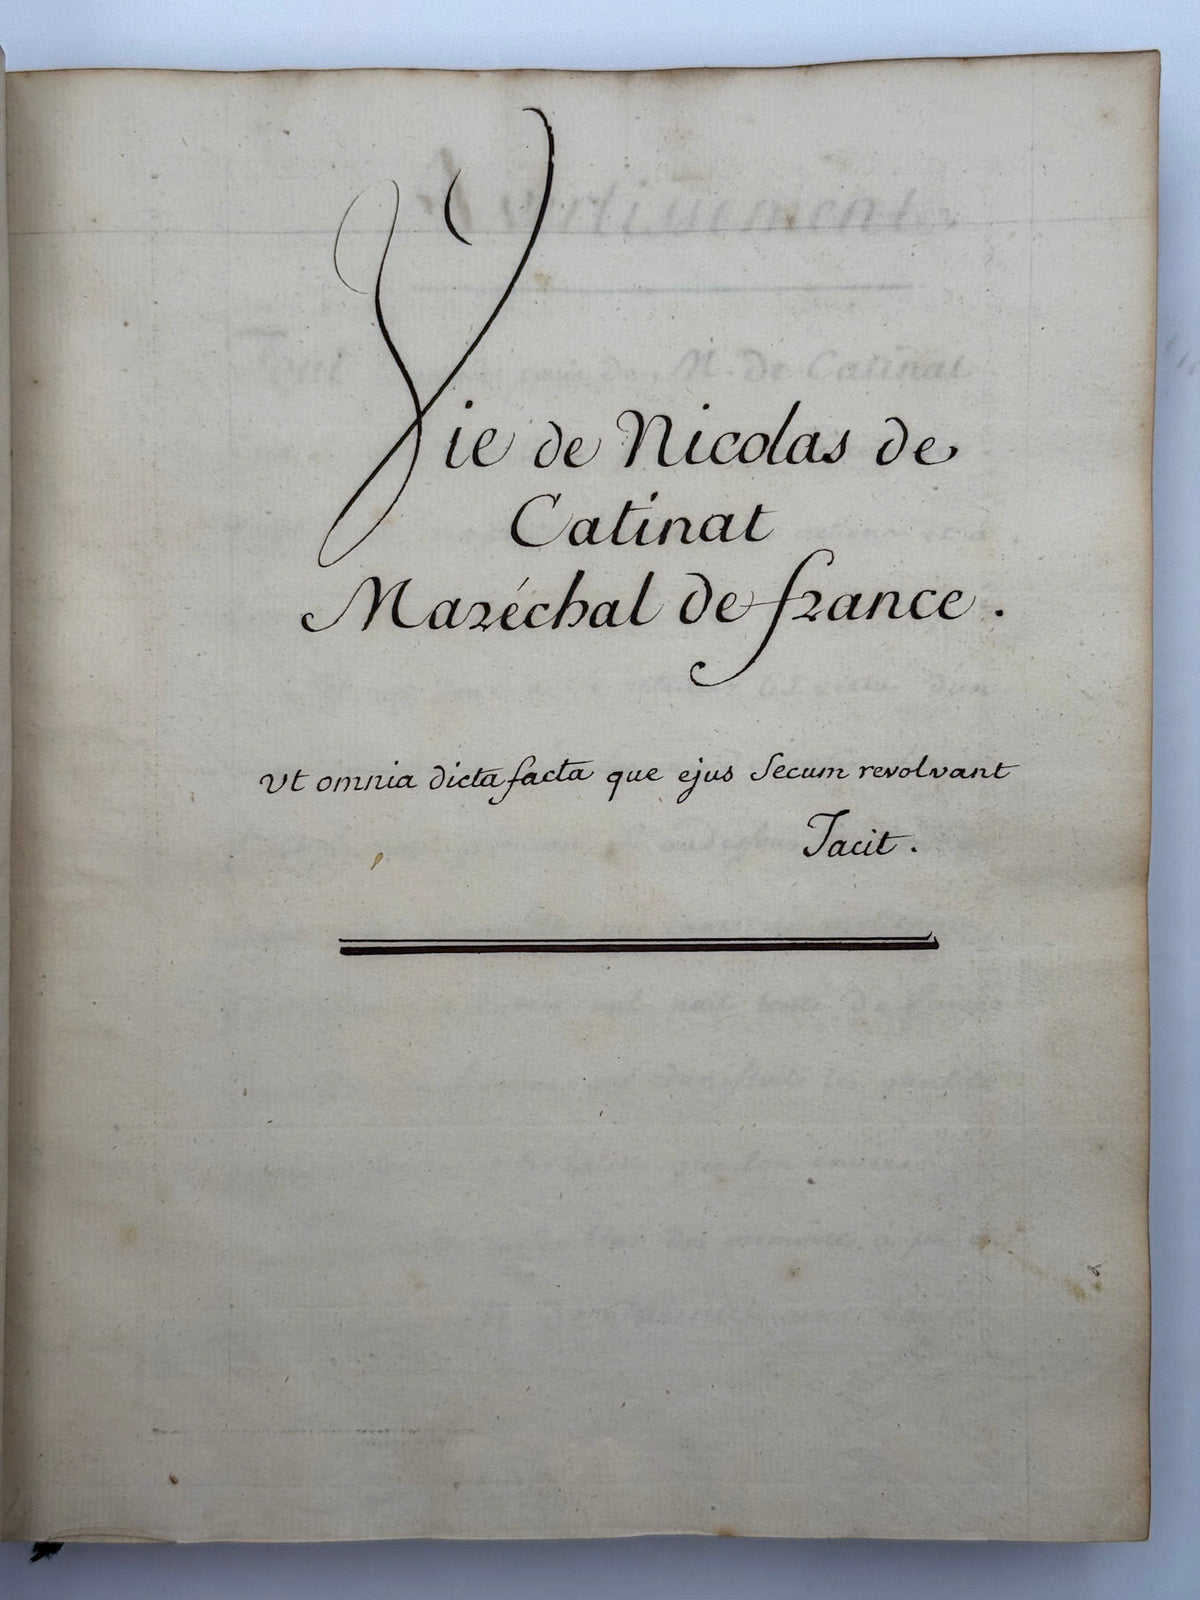 Vie de Nicolas de
Catinat
Maréchal de france.
Ut omnia dicta facta que ejus Secum revolvant
Tacit.